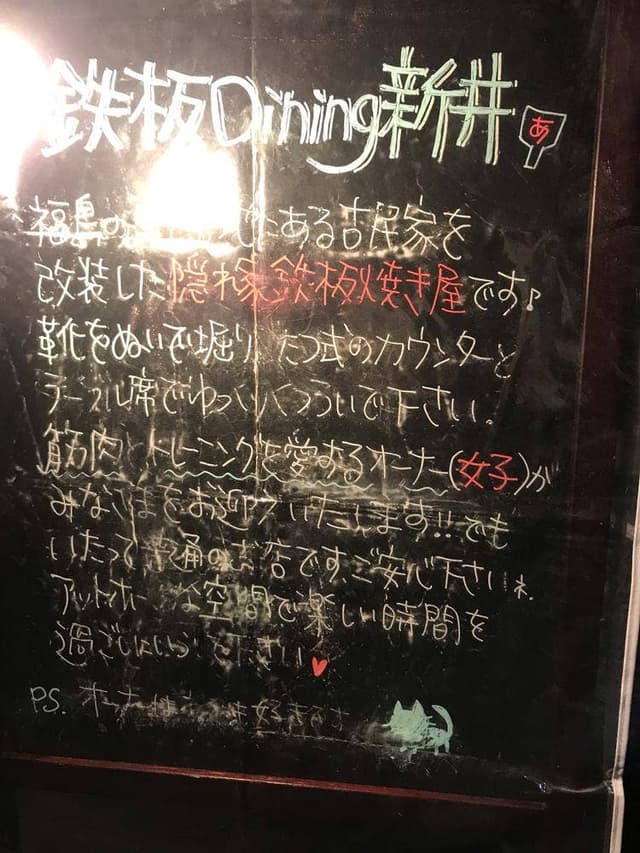 鉄板Dining新井
あ
福島の ある古民家を
改装した隠れ家鉄板焼き屋です♪
靴をぬいで掘り たつ式のカウンターと
テーブル席でゆっくりくつろいで下さい。
筋肉とトレーニングを愛するオーナー(女子)が
みなさまをお迎えいたします!!でも
いたって 普通のお店です、ご安心下さいネ
アットホームな空間で楽しい時間を
過ごして 下さい♥
P.S. オーナーは 好きです